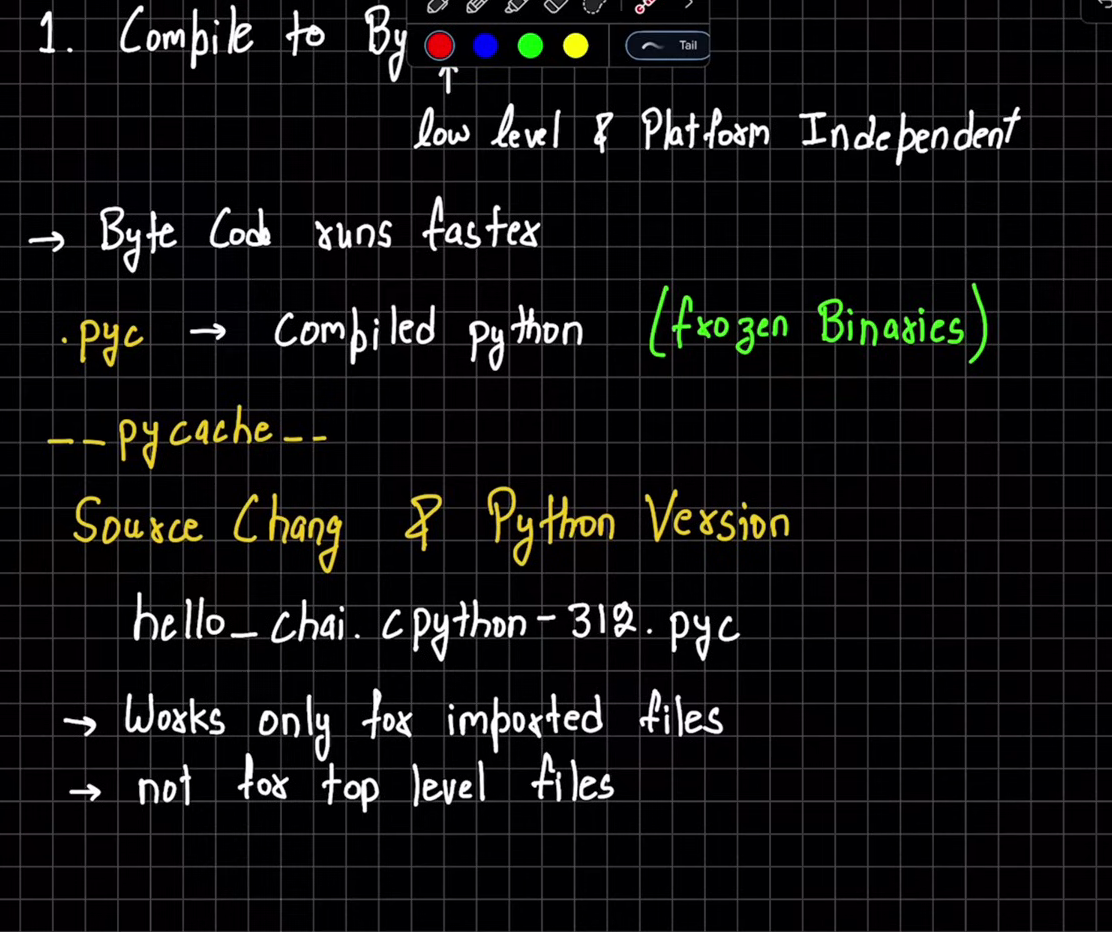 1. Compile to By
Tail
↑
low level & Platform Independent
→ Byte Code runs faster
.pyc → Compiled python (frozen Binaries)
__pycache__
Source Chang & Python Version
hello_chai.cpython-312.pyc
→ Works only for imported files
→ not for top level files